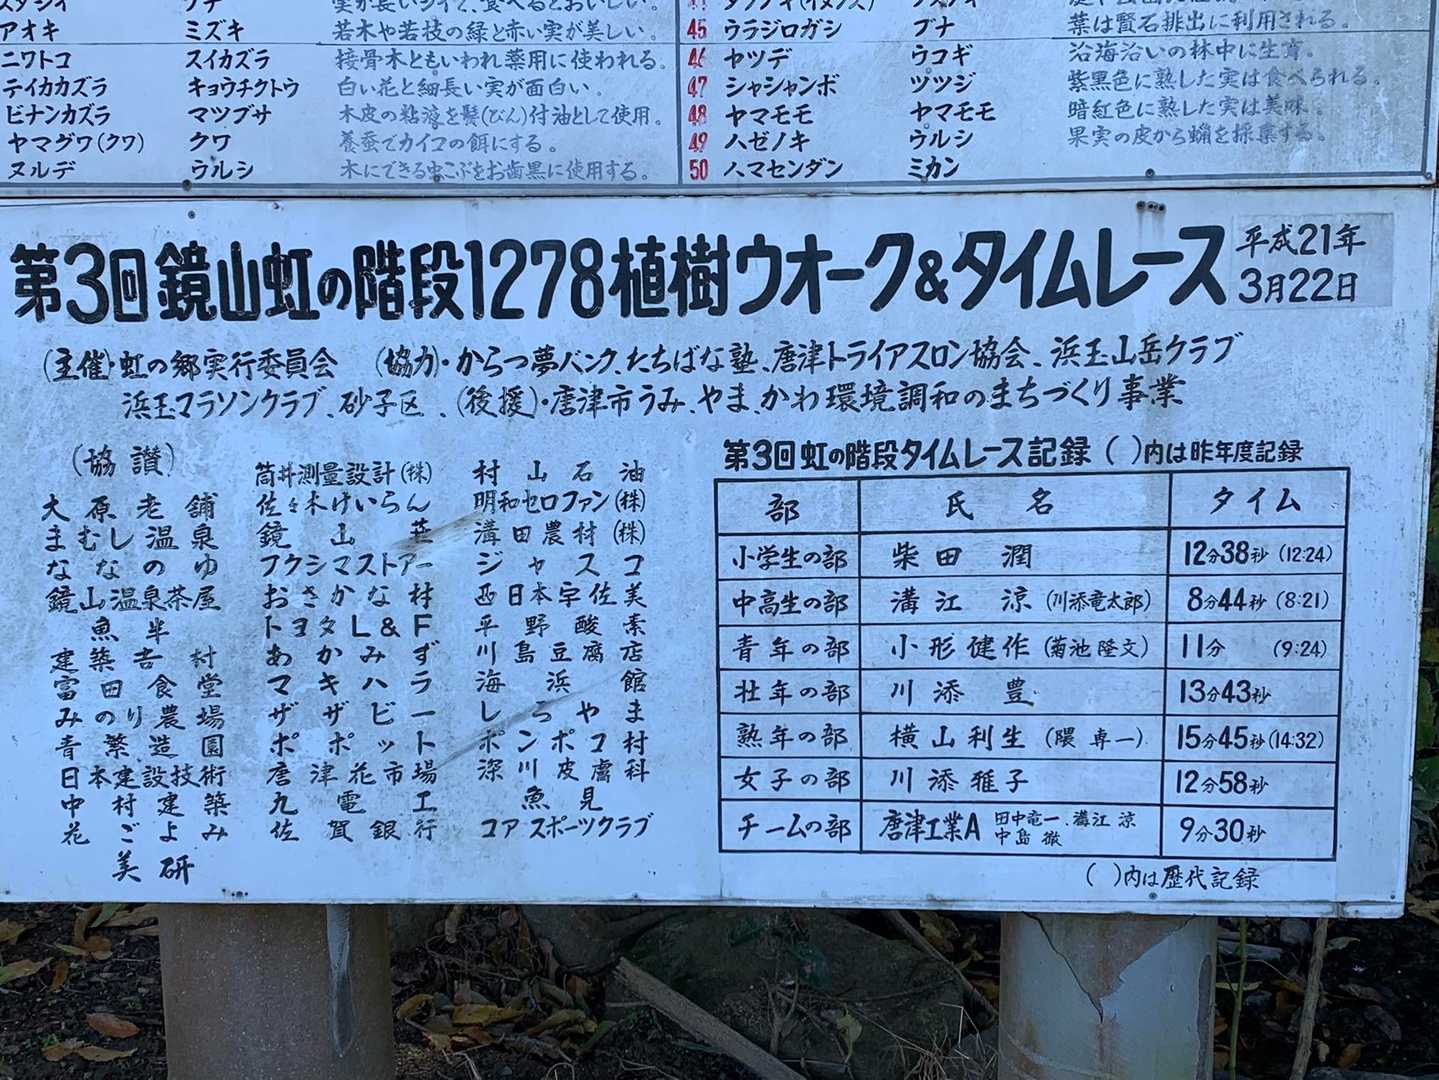 アオキ ミズキ 若木や若枝の緑と赤い実が美しい。
ニワトコ スイカズラ 接骨木ともいわれ薬用に使われる。
テイカカズラ キョウチクトウ 白い花と細長い実が面白い。
ビナンカズラ マツブサ 木皮の粘液を鬢(びん)付油として使用。
ヤマグワ(クワ) クワ 養蚕でカイコの餌にする。
ヌルデ ウルシ 木にできる虫こぶをお歯黒に使用する。
45 ウラジロガシ ブナ 葉は腎石排出に利用される。
46 ヤツデ ウコギ 沿海沿いの林中に生育。
47 シャシャンボ ツツジ 紫黒色に熟した実は食べられる。
48 ヤマモモ ヤマモモ 暗紅色に熟した実は美味。
49 ハゼノキ ウルシ 果実の皮から蝋を採集する。
50 ハマセンダン ミカン
第3回鏡山虹の階段1278植樹ウオーク&タイムレース
平成21年
3月22日
(主催)・虹の郷実行委員会 (協力)・からつ夢バンク、たちばな塾、唐津トライアスロン協会、浜玉山岳クラブ
浜玉マラソンクラブ、砂子区、(後援)・唐津市うみ、やま、かわ環境調和のまちづくり事業
(協讃)
大原老舗
まむし温泉
ななのゆ
鏡山温泉茶屋
魚半
建築吉村
富田食堂
みのり農場
青繁造園
日本建設技術
中村建築
花ごよみ
美研
筒井測量設計(株)
佐々木けいらん
鏡山荘
フクシマストアー
おさかな村
トヨタL&F
あかみず
マキハラ
ザザビー
ポポット
唐津花市場
九電工
佐賀銀行
村山石油
明和セロファン(株)
溝田農材(株)
ジャスコ
西日本宇佐美
平野酸素
川島豆腐店
海浜館
しらやま
ポンポコ村
深川皮膚科
魚見
コアスポーツクラブ
第3回虹の階段タイムレース記録 ( )内は昨年度記録
部 氏名 タイム
小学生の部 柴田 潤 12分38秒 (12:24)
中高生の部 溝江 涼 (川添竜太郎) 8分44秒 (8:21)
青年の部 小形健作 (菊池隆文) 11分 (9:24)
壮年の部 川添 豊 13分43秒
熟年の部 横山利生 (隈専一) 15分45秒 (14:32)
女子の部 川添雅子 12分58秒
チームの部 唐津工業A 田中竜一、溝江 涼 中島 徹 9分30秒
( )内は歴代記録